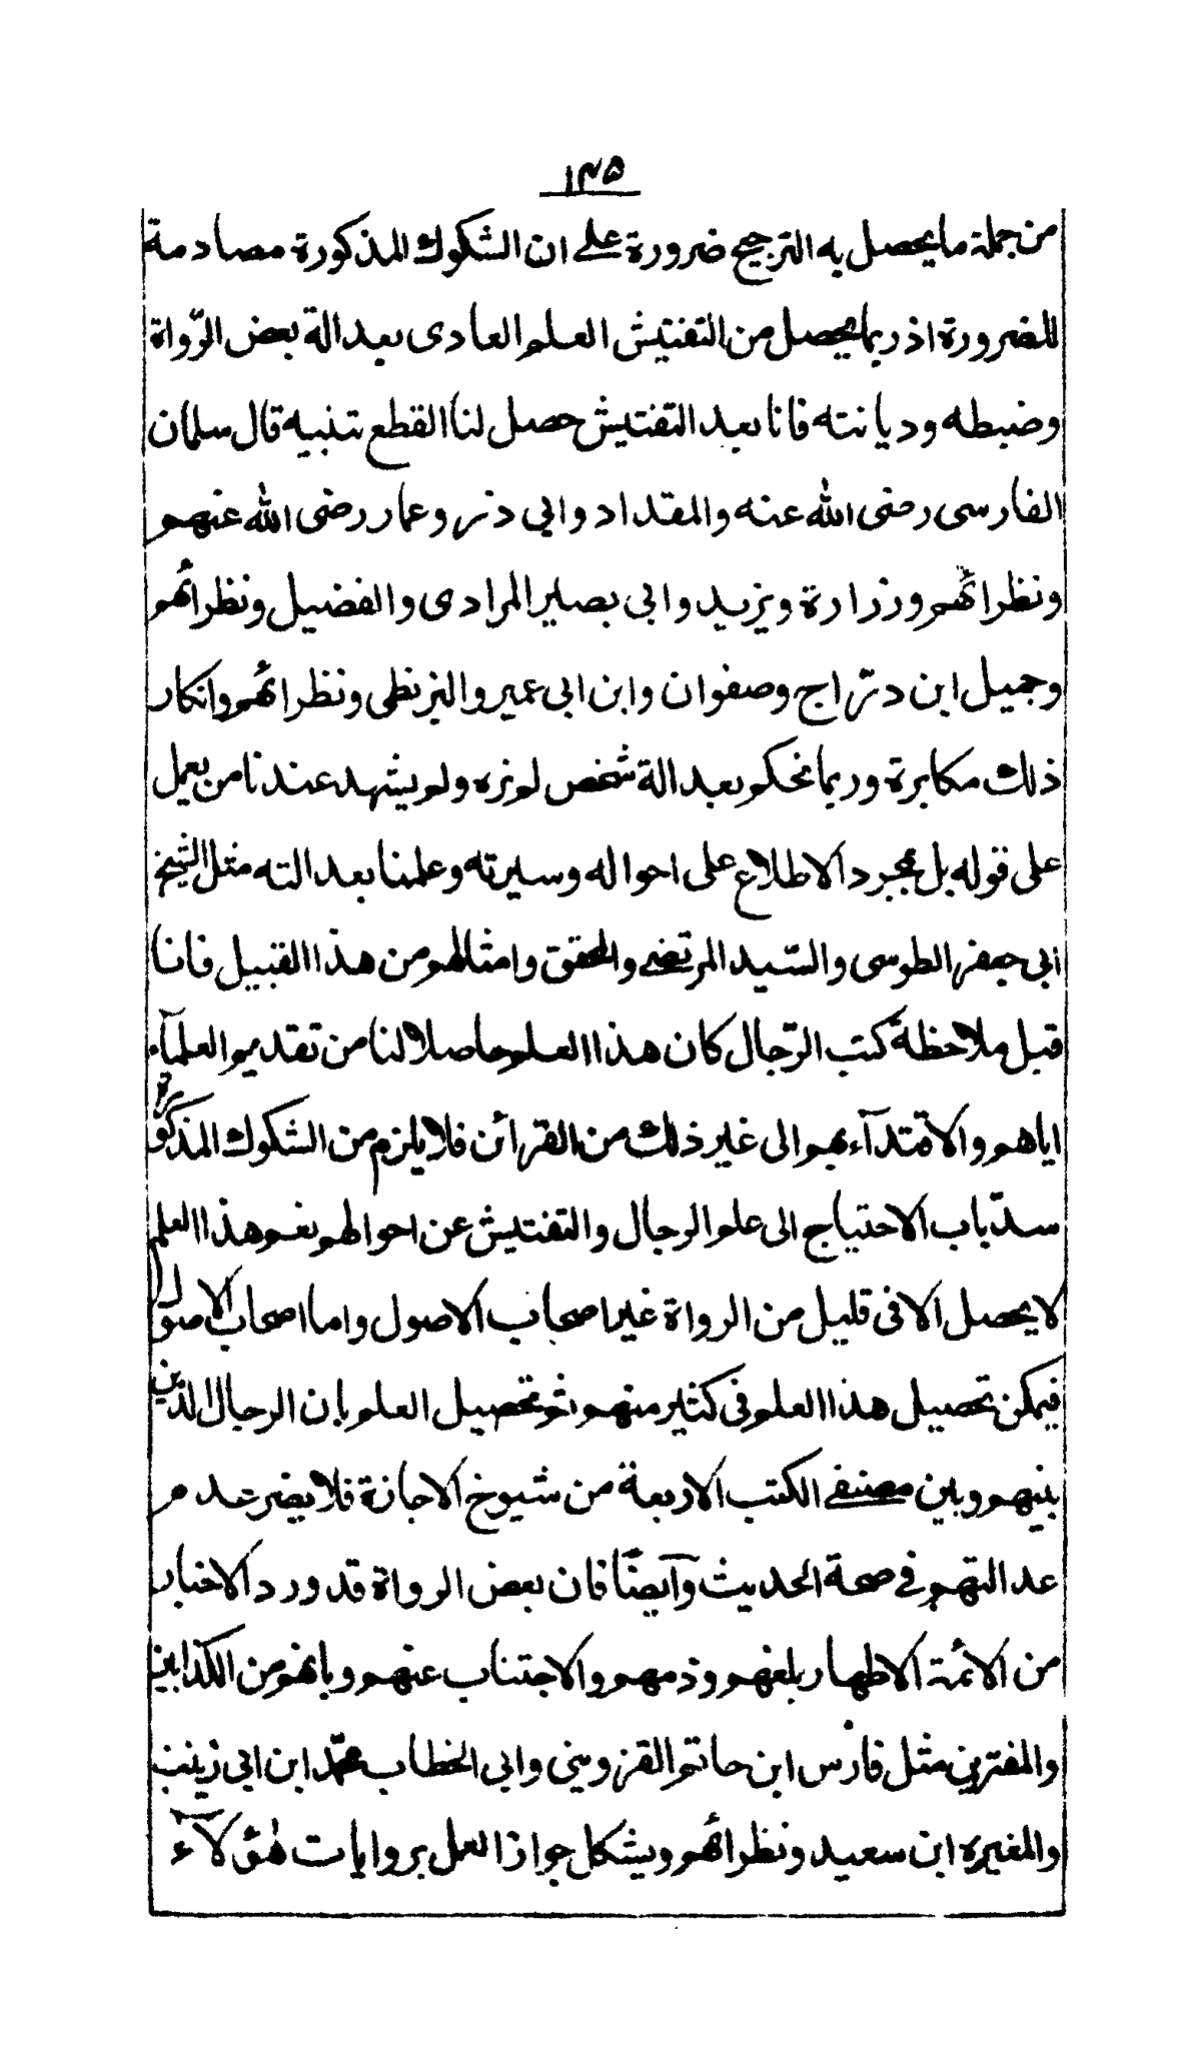 ١٣٥
من جملة ما يحصل به الترجيح ضرورة على ان الشكوك المذكورة مصادمة
للضرورة اذ ربما يحصل من التفتيش العلم العادى بعدالة بعض الرّواة
وضبطه وديانته فانا بعد التفتيش حصل لنا القطع تنبيه قال سلمان
الفارسى رضى الله عنه والمقداد وابي ذر وعمار رضى الله عنهم
ونظرائهم وزرارة ويزيد وابى بصير المرادى والفضيل ونظرائهم
وجميل ابن درّاج وصفوان وابن ابى عمير والبزنطى ونظرائهم وانكار
ذلك مكابرة وربما نحكم بعدالة شخص لم نره ولم يشهد عندنا من يعمل
على قوله بل بمجرد الاطلاع على احواله وسيرته وعلمنا بعدالته مثل الشيخ
ابى جعفر الطوسى والسّيد المرتضى والمحقق وامثالهم من هذا القبيل فانا
قبل ملاحظة كتب الرّجال كان هذا العلم حاصلا لنا من تقديم العلمآء
اياهم والاقتدآء بهم الى غير ذلك من القرائن فلا يلزم من الشكوك المذكورة
سدّ باب الاحتياج الى علم الرجال والتفتيش عن احوالهم نعم هذا العلم
لا يحصل الا فى قليل من الرواة غير اصحاب الاصول واما اصحاب الاصول
فيمكن تحصيل هذا العلم فى كثير منهم ثم تحصيل العلم بان الرجال الذين
بينهم وبين مصنفى الكتب الاربعة من شيوخ الاجازة فلا يضر عدم
عدالتهم فى صحة الحديث وآيضًا فان بعض الرواة قد ورد الاخبار
من الائمة الاطهار بلعنهم وذمهم والاجتناب عنهم وبانهم من الكذابين
والمفترين مثل فارس ابن حاتم القزويني وابي الخطاب محمّد ابن ابي زينب
والمغيره ابن سعيد ونظرائهم ويشكل جواز العمل بروايات هٰؤلآء